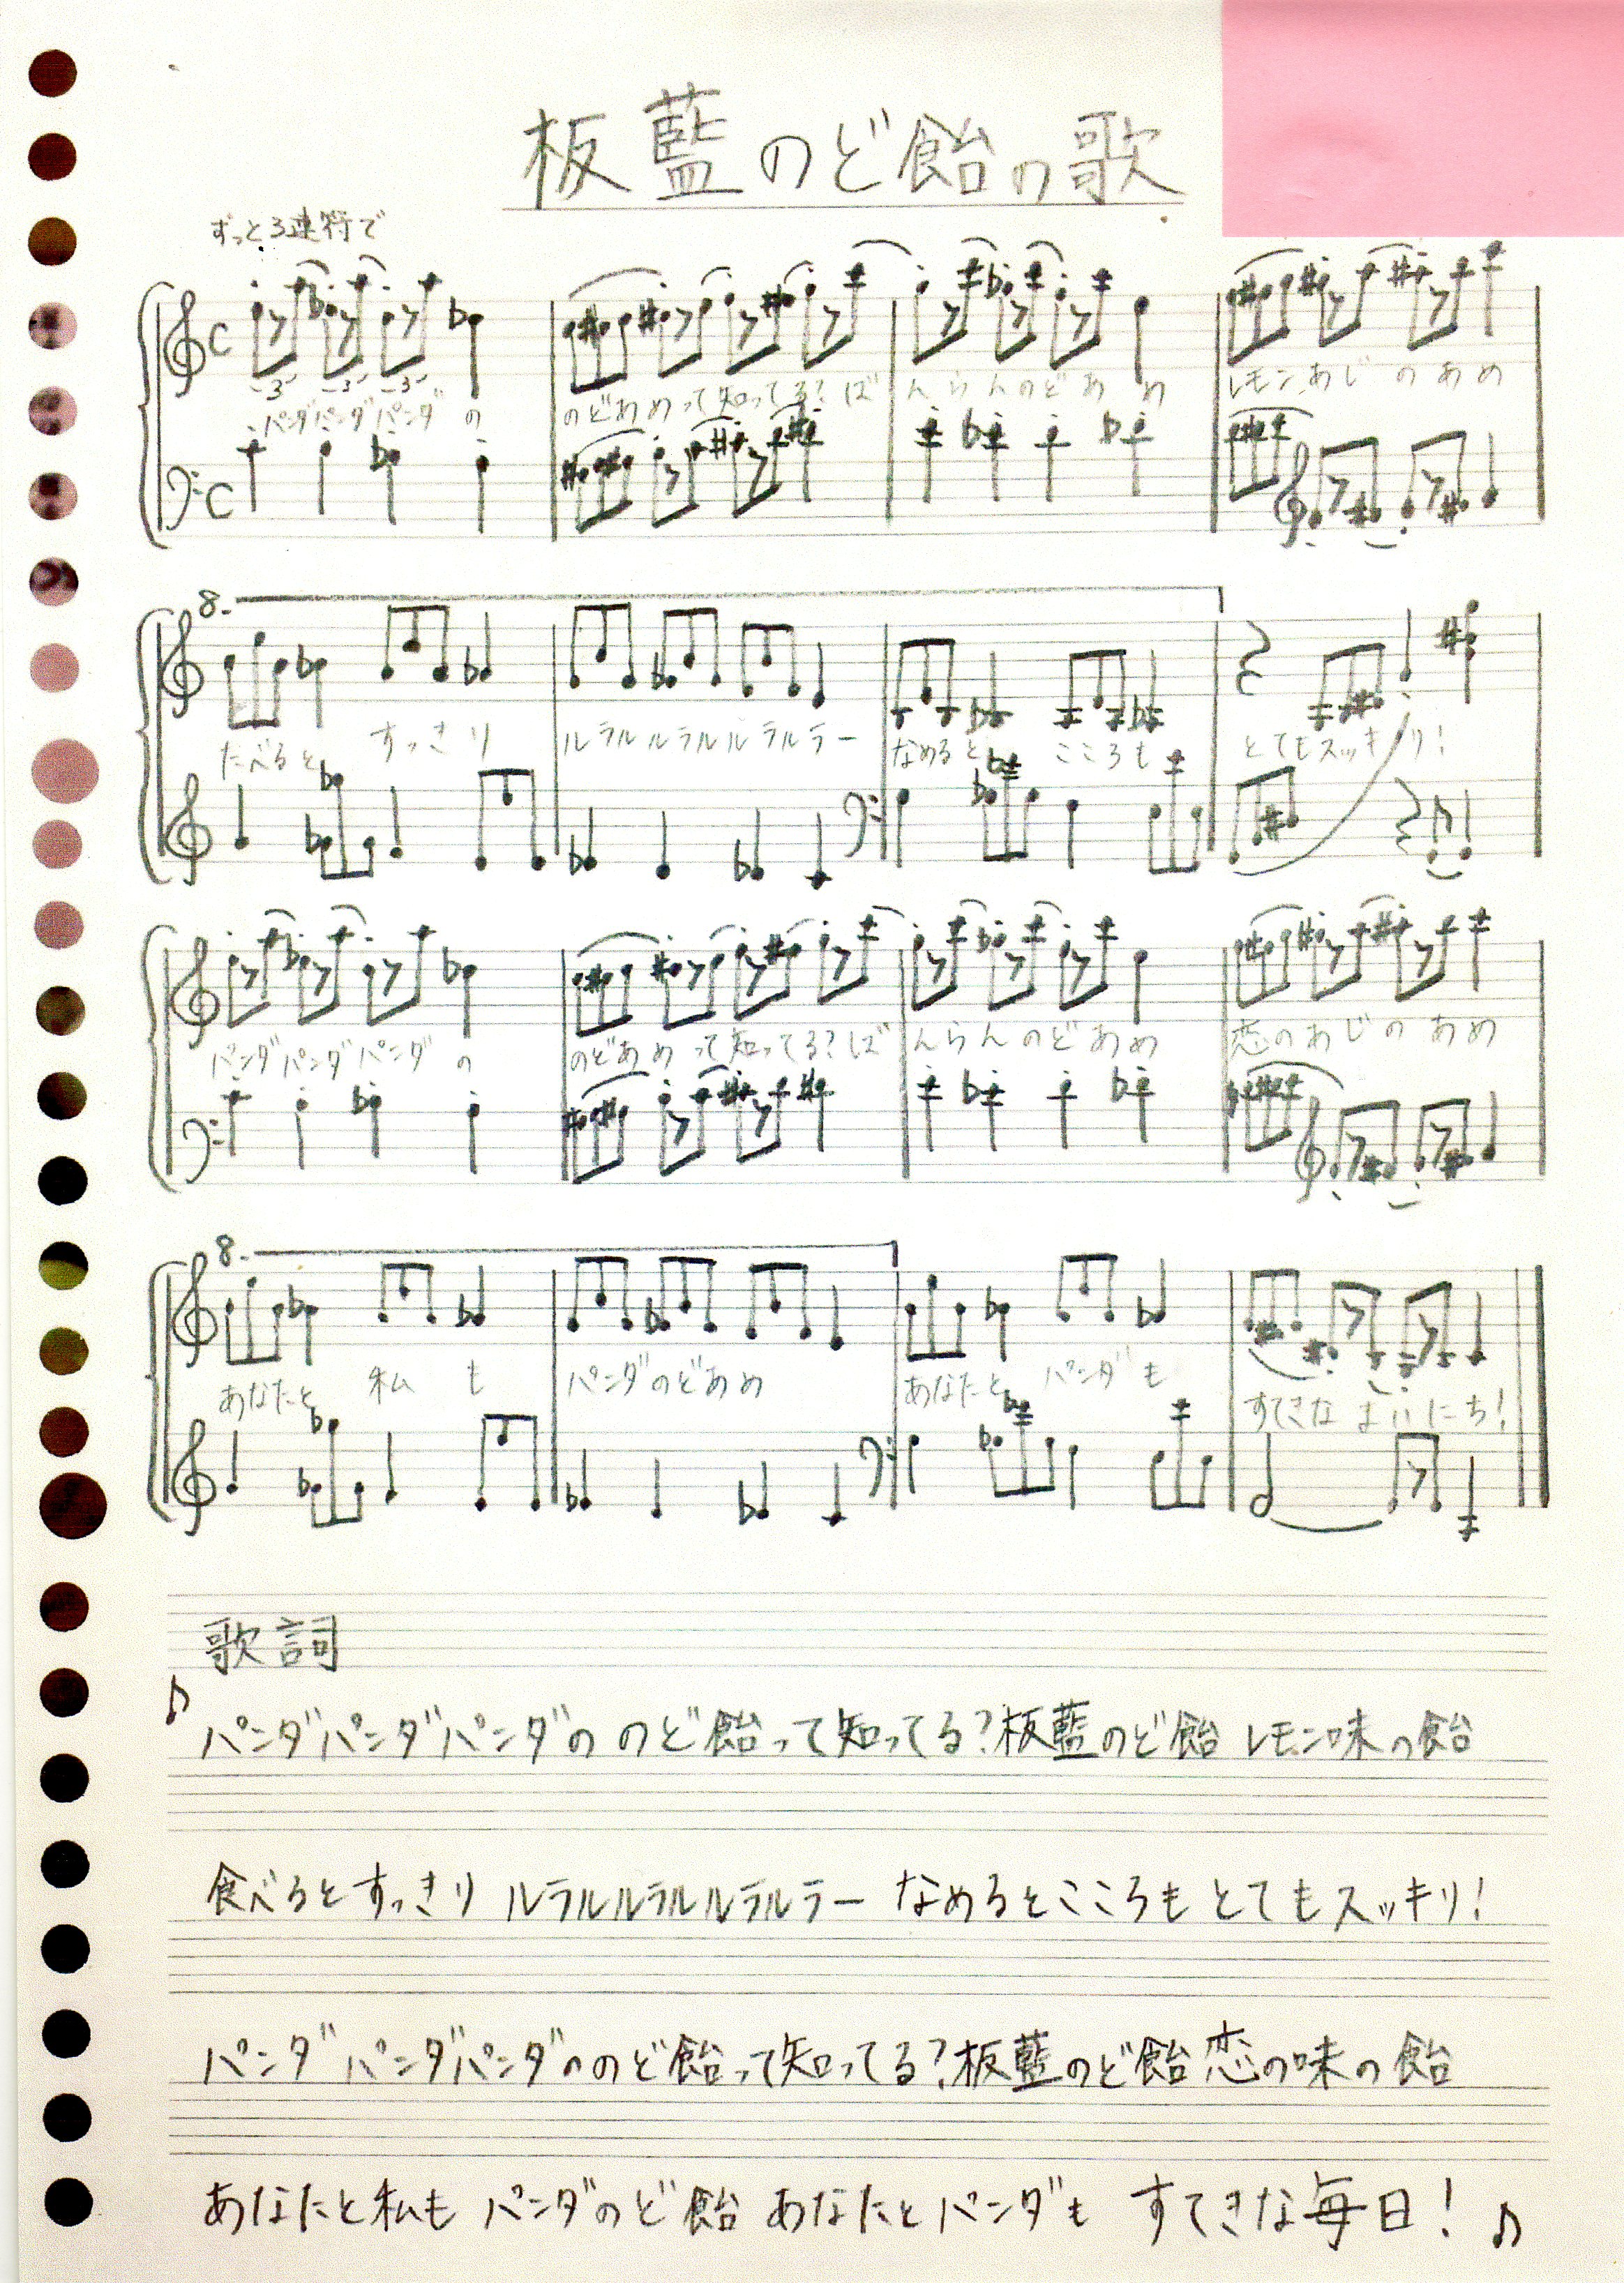 板藍のど飴の歌
ずっと3連符で
3 3 3
パンダパンダパンダの のどあめって知ってる?ば んらんのどあめ レモンあじのあめ
8
たべると すっきり ルラルルラルルラルラー なめると こころも とてもスッキリ!
パンダパンダパンダの のどあめって知ってる?ば んらんのどあめ 恋のあじのあめ
8
あなたと 私も パンダのどあめ あなたと パンダも すてきなまいにち!
歌詞
♪パンダパンダパンダの のど飴って知ってる?板藍のど飴 レモン味の飴
食べるとすっきり ルラルルラルルラルラー なめるとこころも とてもスッキリ!
パンダ パンダパンダののど飴って知ってる?板藍のど飴 恋の味の飴
あなたと私も パンダのど飴 あなたとパンダも すてきな毎日!♪